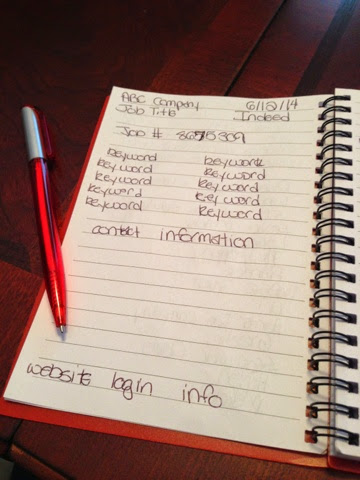 ABC Company 6/12/14
Job Title Indeed
Job # 8675309
keyword keyword
keyword keyword
keyword keyword
keyword keyword
keyword keyword
contact information
website login info